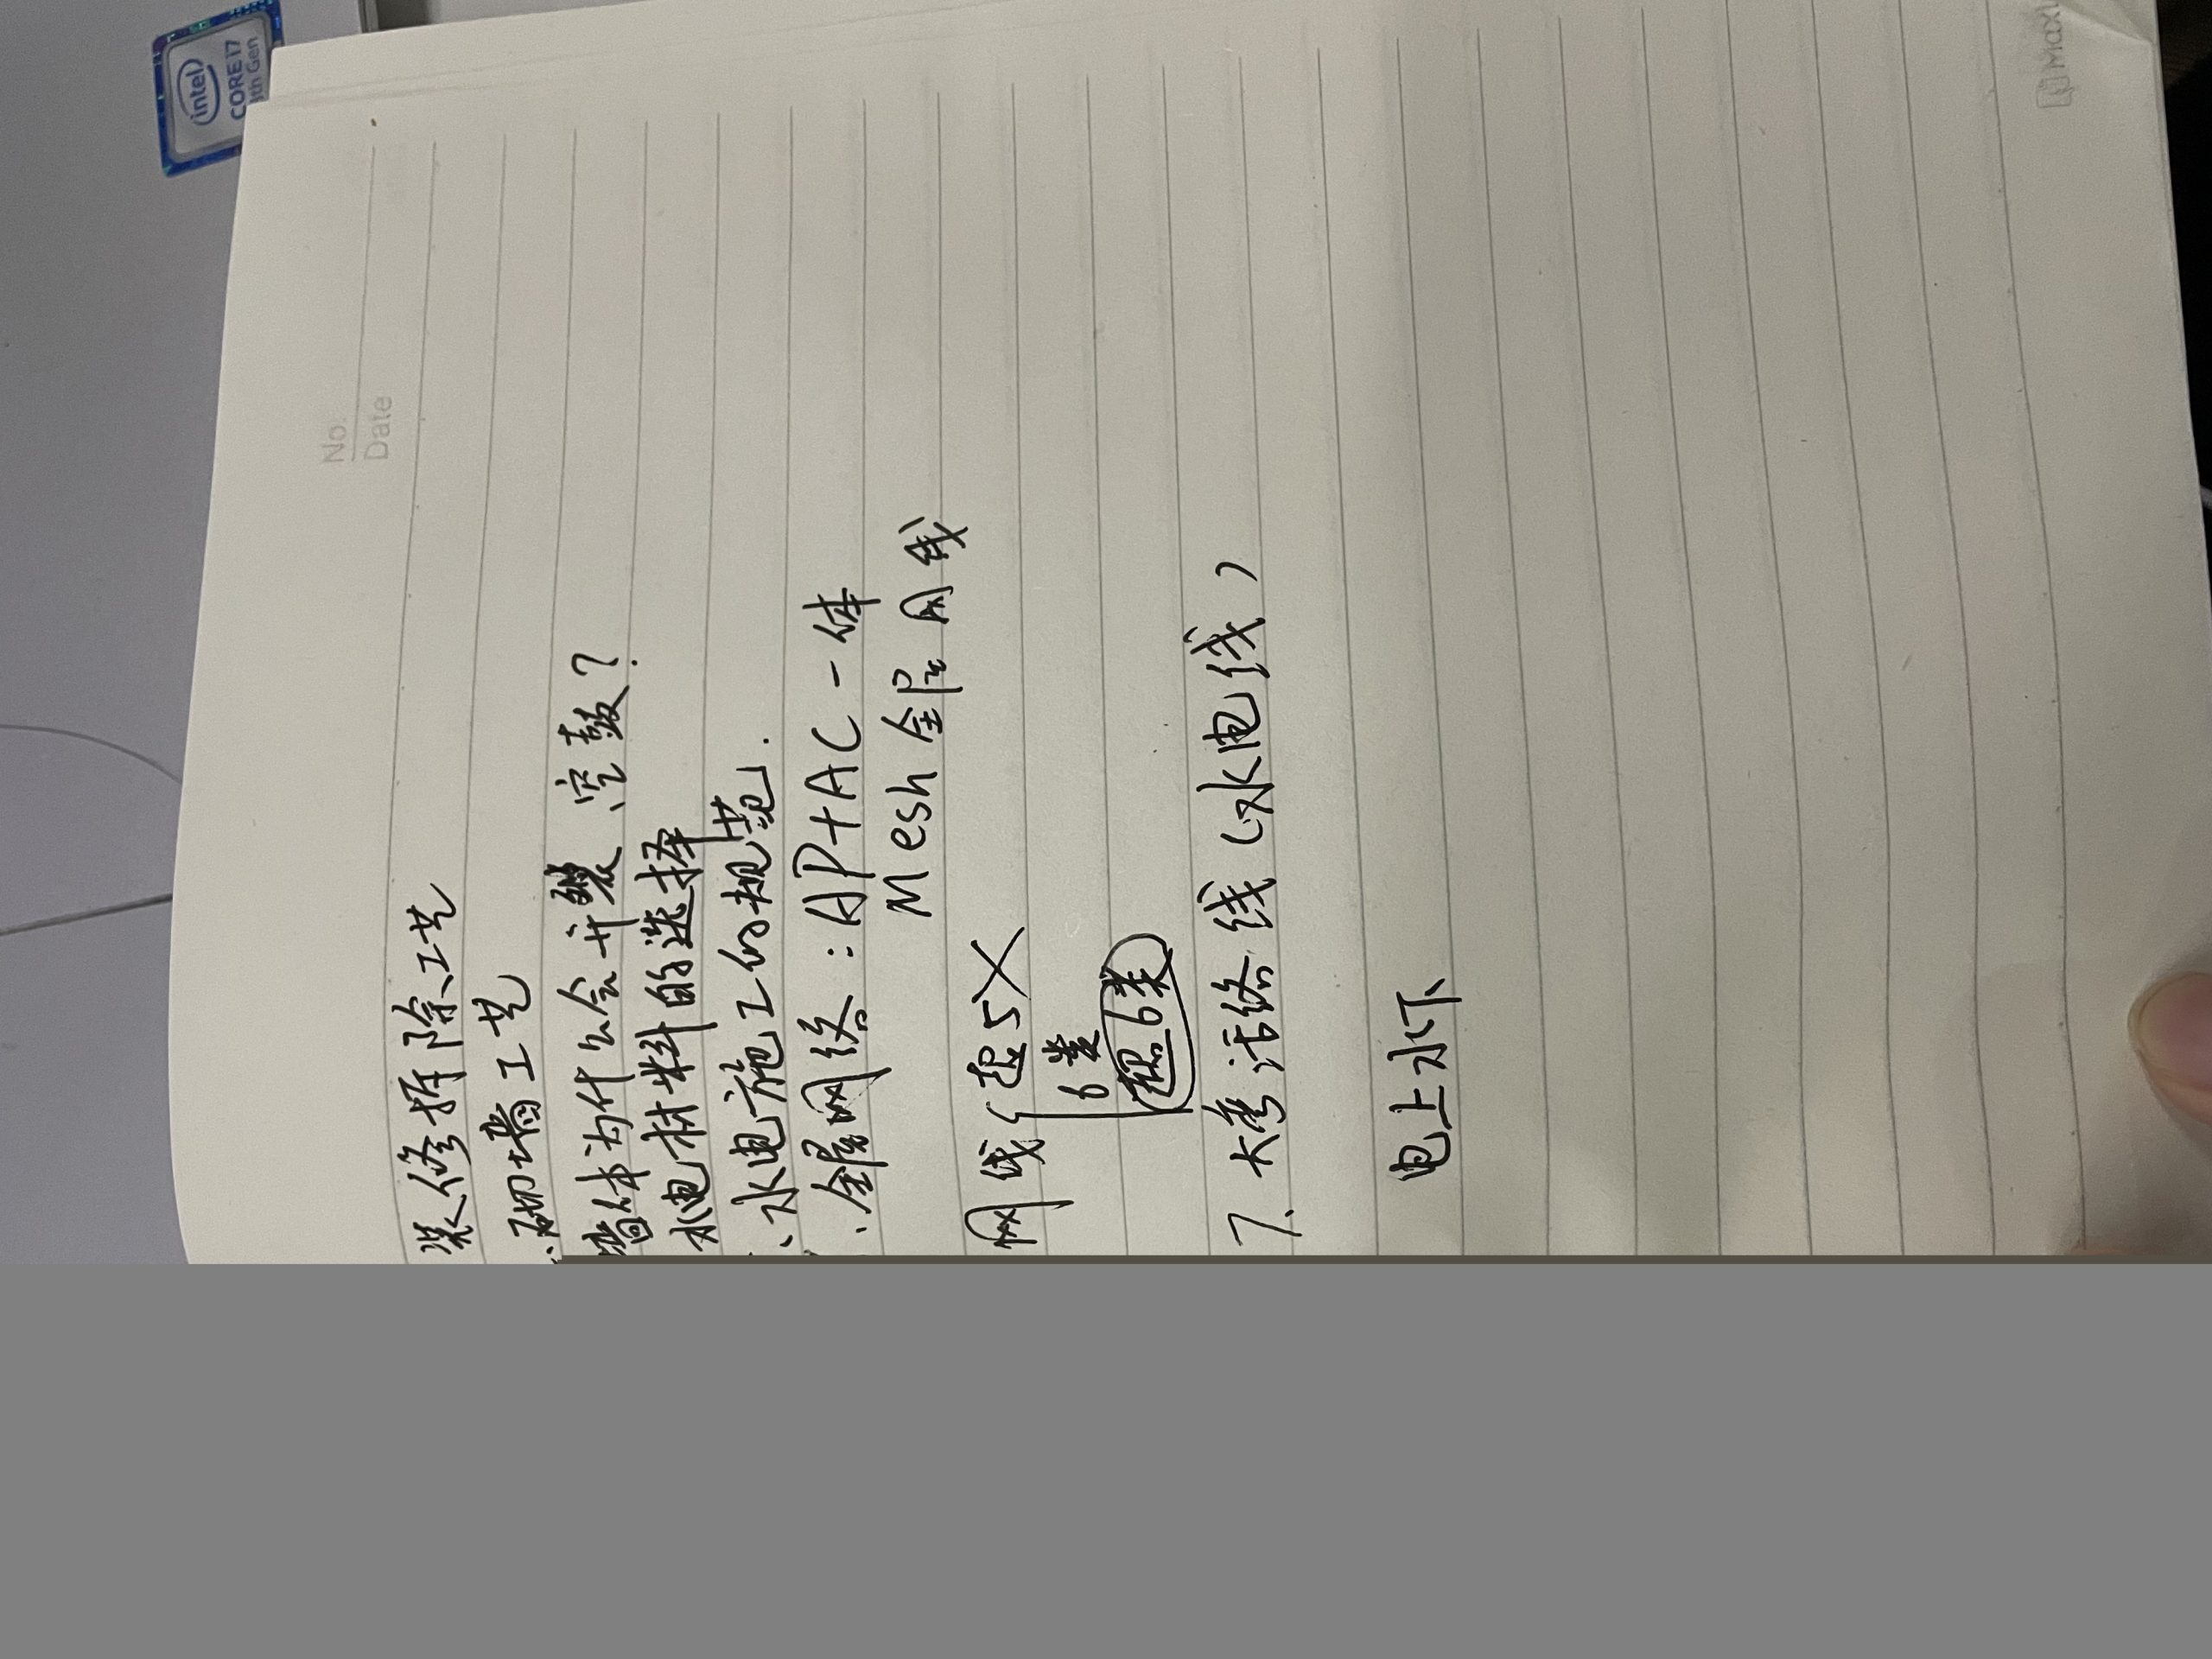 intel
CORE i7
th Gen
No.
Date
装修拆除工艺
、砌墙工艺
墙体为什么会开裂 空鼓？
水电材料的选择
、水电施工的规范.
、全屋网络：AP+AC一体
Mesh 全屋网线
网线{ 超5×
6类
超6类
7、大秀活络线（水电线）
电上水下
Maxi